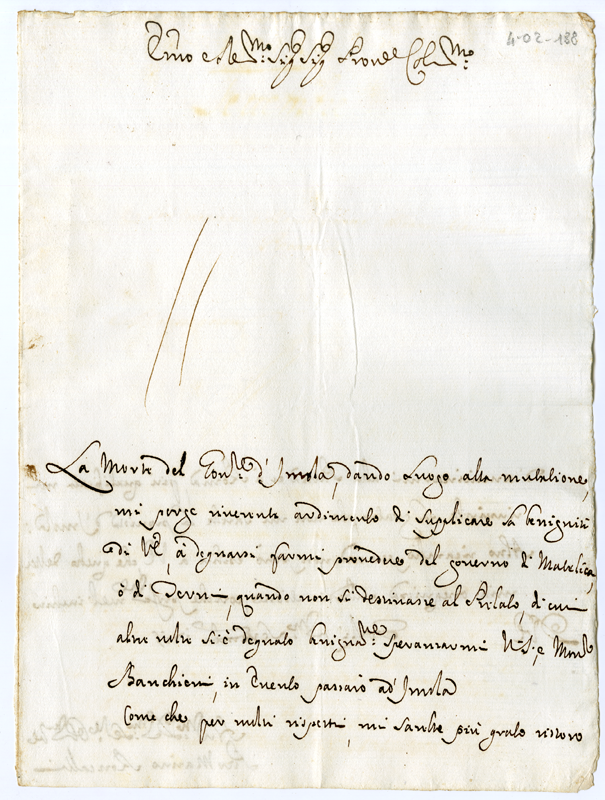 4-02-188
Em̃o e Re^mo Sig^r Sig^r Pron̄e Col^mo
La Morte del Gov^re d'Imola, dando luogo alla mutatione,
mi porge riverente ardimento di supplicare la benignità
di V.E. à degnarsi farmi provedere del governo di Matelica,
ò di Terni, quando non si destinasse al Prelato, di cui
altre volte si è degnato benigna^te speranzarmi N.S., e Mons^r
Banchieri, in evento passasse ad Imola
Come che per molti rispetti, mi sarebbe più grato ristoro